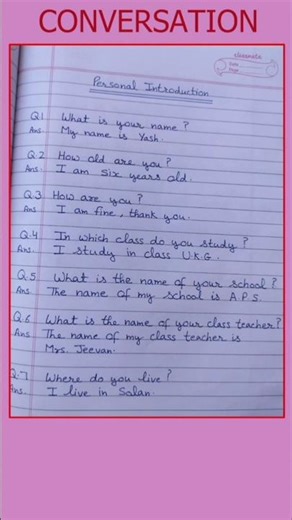 CONVERSATION
classmate
Date
Page
Personal Introduction
Q.1 What is your name?
Ans. My name is Yash.
Q.2 How old are you?
Ans. I am six years old.
Q.3 How are you?
Ans. I am fine, thank you.
Q.4 In which class do you study?
Ans. I study in class U.K.G.
Q.5 What is the name of your school?
Ans. The name of my school is A.P.S.
Q.6 What is the name of your class teacher?
Ans The name of my class teacher is
Mrs. Jeevan.
Q.7 Where do you live?
Ans. I live in Solan.